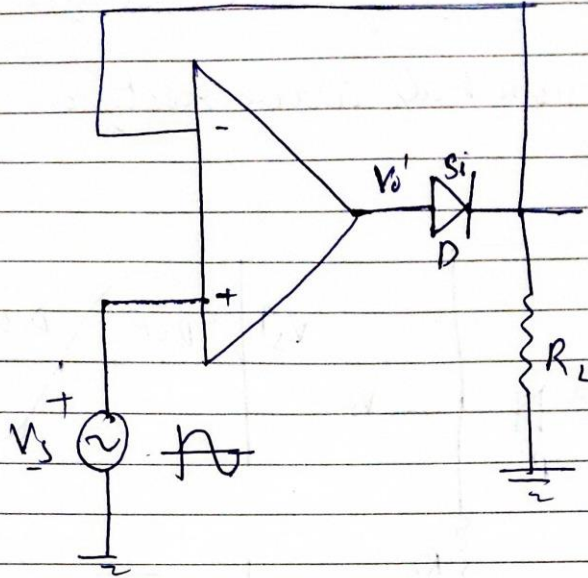 -
Vo' Si
D
+
RL
+
Vs
-